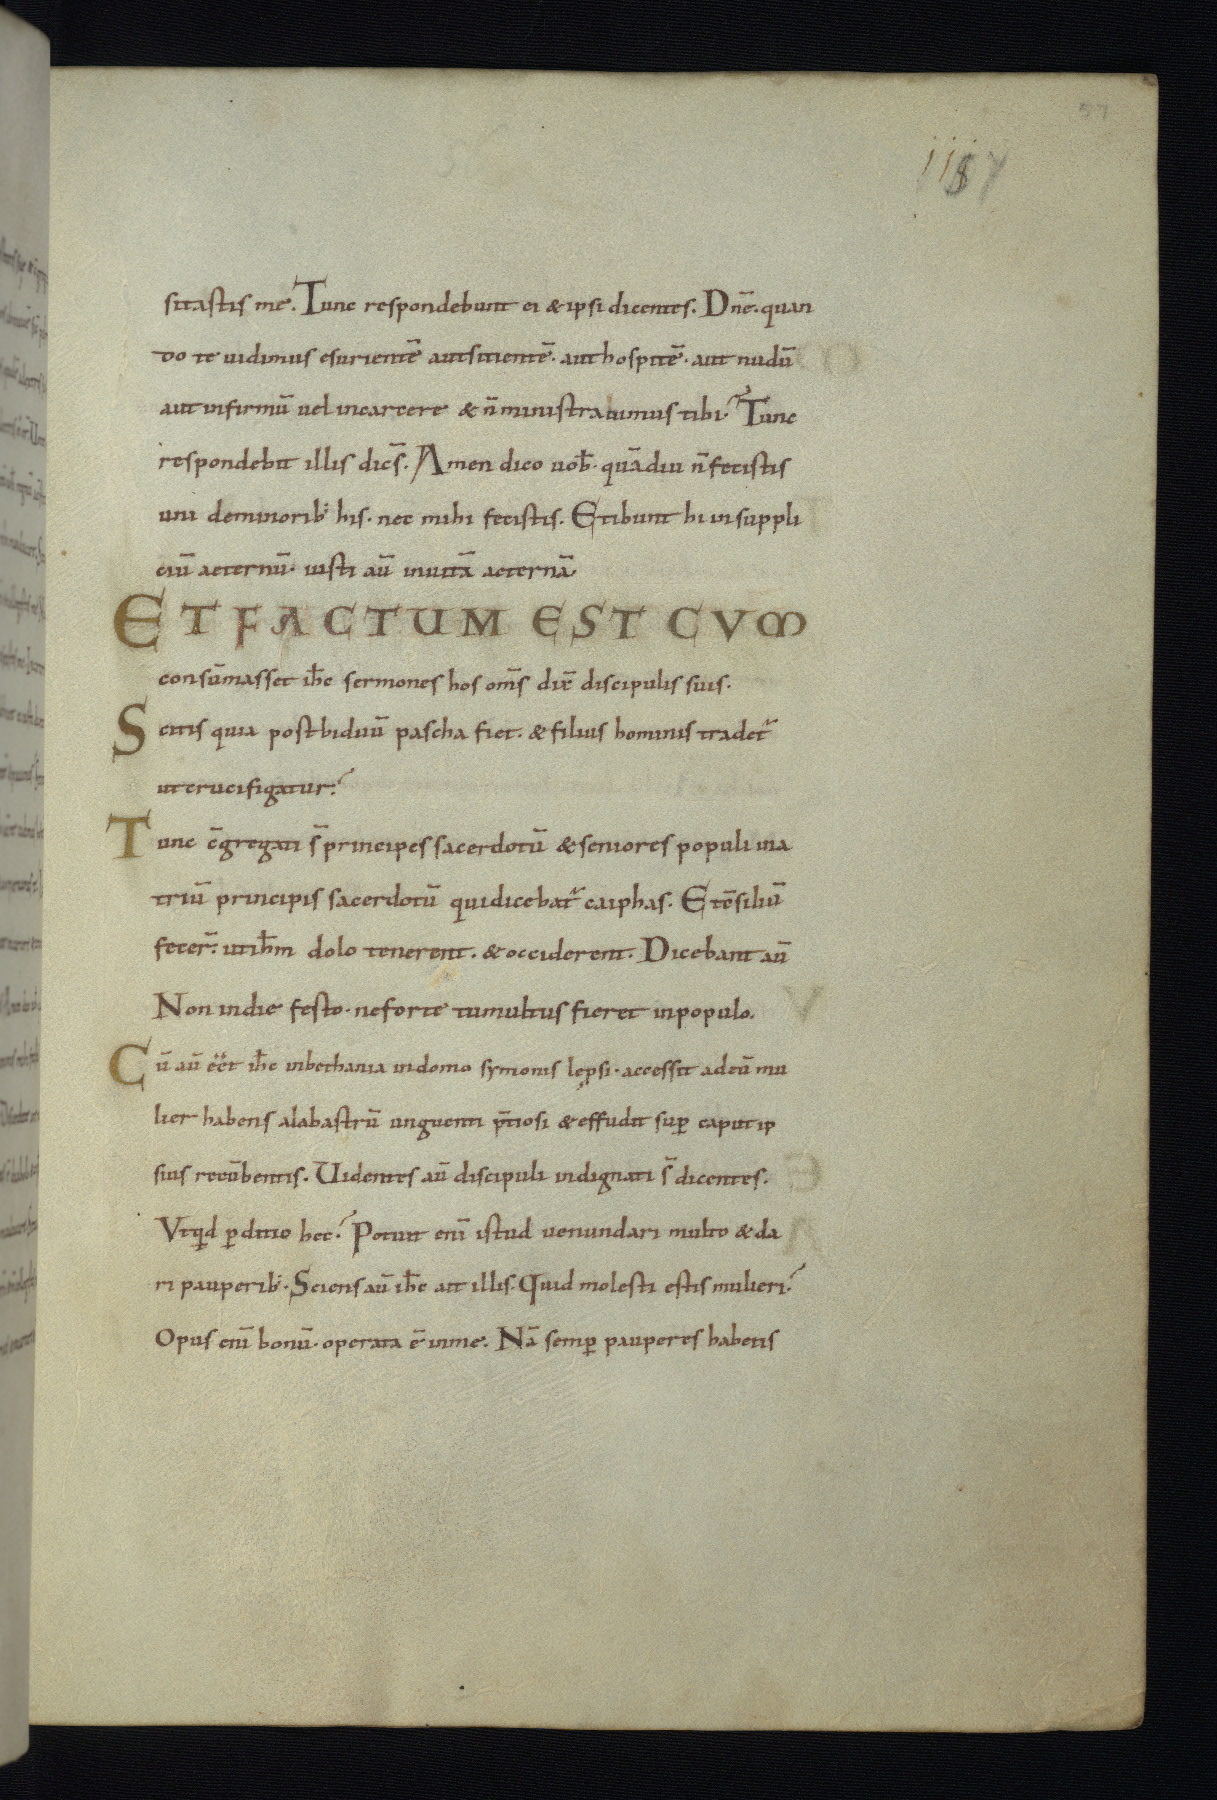 57
sitastis me. Tunc respondebunt ei & ipsi dicentes. Dn̄e. quan
do te uidimus esurientē aut sitientē. aut hospitē. aut nudū
aut infirmū uel in carcere & n̄ ministrauimus tibi? Tunc
respondebit illis dic̄s. Amen dico uob̄. quādiu n̄ fecistis
uni de minorib; his. nec mihi fecistis. Et ibunt hi in suppli
ciū aeternū. iusti aū in uitā aeternā.
ET FACTUM EST CVM
consūmasset ih̄c sermones hos om̄s dix̄ discipulis suis.
Scitis quia post biduū pascha fiet. & filius hominis tradet᷑
ut crucifigatur?
Tunc c̄gregati s̄ principes sacerdotū & seniores populi in a
triū principis sacerdotū qui dicebat᷑ caiphas. Et c̄siliū
fecer̄. ut ih̄m dolo tenerent. & occiderent. Dicebant aū
Non in die festo. ne forte tumultus fieret in populo.
Cū aū eēt ih̄c in bethania in domo symonis lep̱si. accessit ad eū mu
lier habens alabastrū unguenti p̄tiosi & effudit sup̱ caput ip
sius recūbentis. Uidentes aū discipuli indignati s̄ dicentes.
Vt qid p̱ditio hec? Potuit enī istud uenundari multo & da
ri pauperib;. Sciens aū ih̄c ait illis. Quid molesti estis mulieri?
Opus enī bonū. operata ē in me. Nā semp̱ pauperes habetis